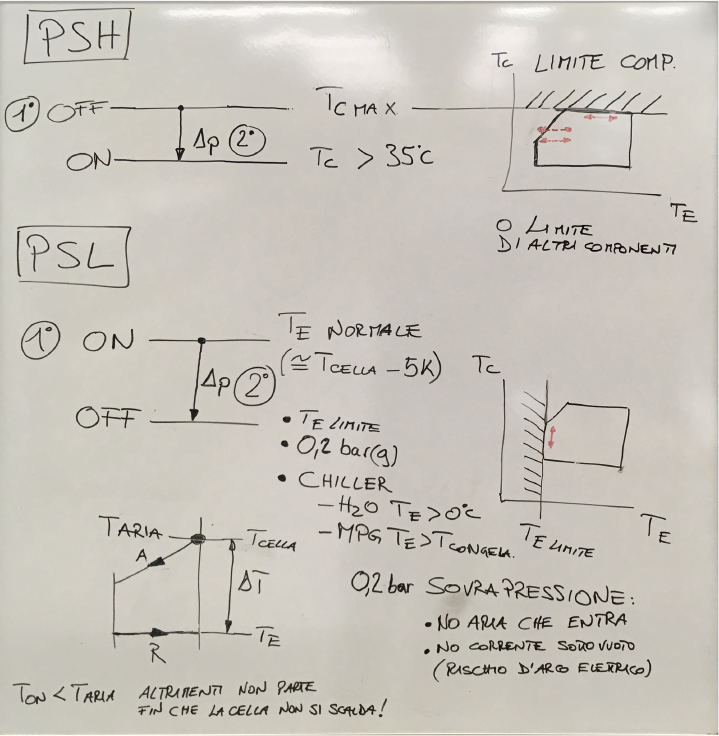 PSH
1° OFF
TC MAX
Δp 2°
ON
TC > 35°C
TC LIMITE COMP.
TE
O LIMITE
DI ALTRI COMPONENTI
PSL
1° ON
TE NORMALE
(≅ TCELLA - 5K)
Δp 2°
OFF
• TE LIMITE
• 0,2 bar(g)
• CHILLER
- H2O TE > 0°C
- MPG TE > TCONGELA.
TC
TE LIMITE
TE
TARIA
TCELLA
A
ΔT
TE
R
0,2 bar SOVRAPRESSIONE:
• NO ARIA CHE ENTRA
• NO CORRENTE SOTTO VUOTO
(RISCHIO D'ARCO ELETRICO)
TON < TARIA ALTRIMENTI NON PARTE
FIN CHE LA CELLA NON SI SCALDA!